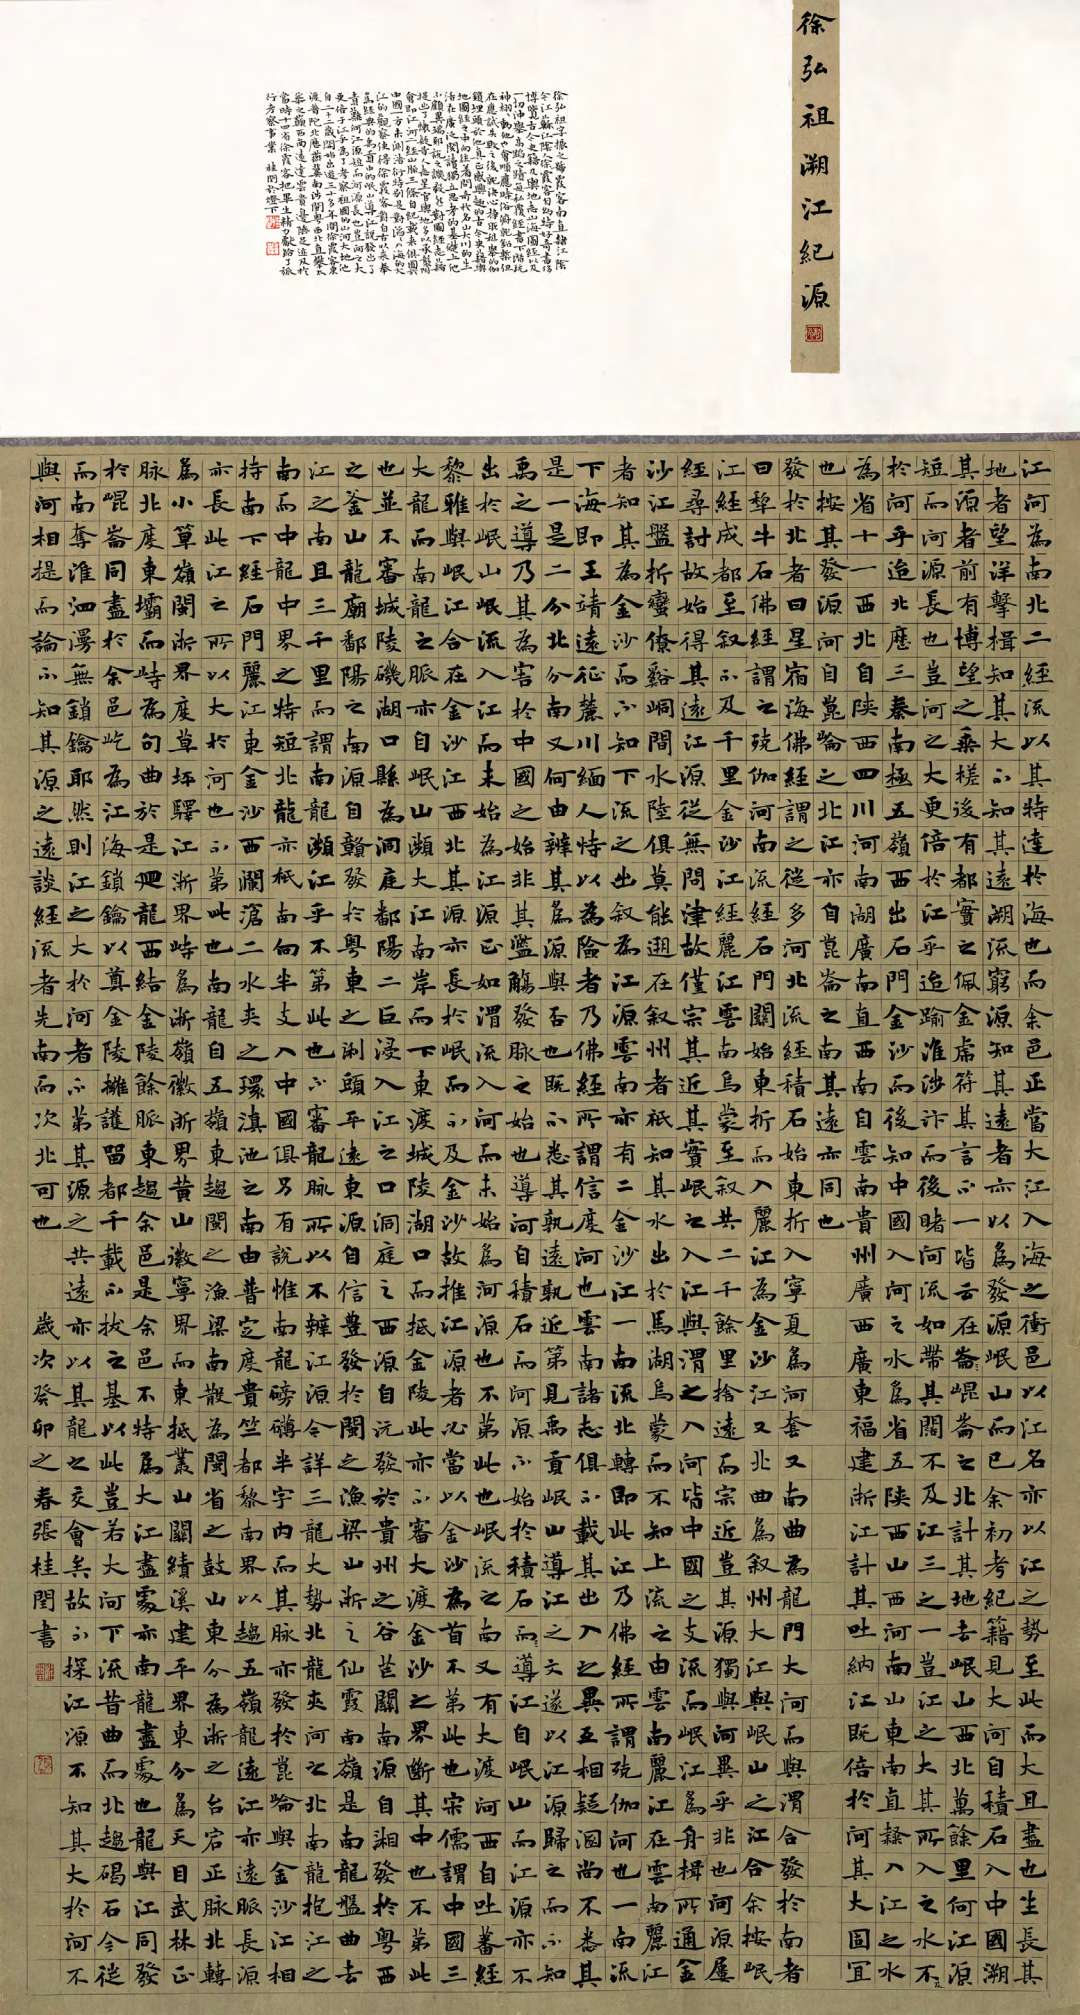 徐弘祖溯江紀源
徐弘祖字振之號霞客南直隸江陰
今江蘇江陰人徐霞客自幼特好奇書侈
博覽古今史籍及輿地志山海圖經以及
一切沖舉高蹈之蹟每私覆經書下潛玩
神栩動他也曾順應時俗
在應試失敗之後就決心
鎖埋頭於他真正感興趣的古今史籍與
地圖經之中向往著問奇於名山大川的生
活在廣泛閱讀獨立思考的基礎上他
不顧異端邪說之譏毅然對圖經志籍
提出了懷疑昔人志星官輿地多以承襲附
會即江河二經山脈三條自記載來俱囿
中國一方未測浩衍特別是對
江的觀察使得徐霞客對自古以來奉
為經典的禹貢中的岷山導江說發出了
責難河江源短而河源長也豈河之大
更倍于江乎為了考察祖國的山河大地他
自二十二歲開始出遊三十多年間徐霞客東
渡普陀北歷燕冀南涉閩粵西北直攀太
華之巔西南遠達雲貴邊陲足迹及於
當時十四省徐霞客把畢生精力獻給了旅
行考察事業 桂閏於燈下
江河為南北二經流以其特達於海也而余邑正當大江入海之衝邑以江名亦以江之勢至此而大且盡也生長其
地者望洋擊楫知其大不知其遠溯流窮源知其遠者亦以為發源岷山而已余初考紀籍見大河自積石入中國溯
其源者前有博望之乘槎後有都實之佩金虎符其言不一皆云在崙崐崙之北計其地去岷山西北萬餘里何江源
短而河源長也豈河之大更倍於江乎迨踰淮涉汴而後睹河流如帶其闊不及江三之一豈江之大其所入之水不及
於河乎迨北歷三秦南極五嶺西出石門金沙而後知中國入河之水為省五陝西山西河南山東南直隸入江之水
為省十一西北自陝西四川河南湖廣南直西南自雲南貴州廣西廣東福建浙江計其吐納江既倍於河其大固宜
也按其發源河自崑崙之北江亦自崑崙之南其遠亦同也
發於北者曰星宿海佛經謂之徙多河北流經積石始東折入寧夏為河套又南曲為龍門大河而與渭合發於南者
曰犂牛石佛經謂之殑伽河南流經石門關始東折而入麗江為金沙江又北曲為敘州大江與岷山之江合余按岷
江經成都至敘不及千里金沙江經麗江雲南烏蒙至敘共二千餘里捨遠而宗近豈其源獨與河異乎非也河源屢
經尋討故始得其遠江源從無問津故僅宗其近其實岷之入江與渭之入河皆中國之支流而岷江為舟楫所通金
沙江盤折蠻僚谿峒間水陸俱莫能遡在敘州者祇知其水出於馬湖烏蒙而不知上流之由雲南麗江在雲南麗江
者知其為金沙而不知下流之出敘為江源雲南亦有二金沙江一南流北轉即此江乃佛經所謂殑伽河也一南流
下海即王靖遠征麓川緬人恃以為險者乃佛經所謂信度河也雲南諸志俱不載其出入之異互相疑溷尚不悉其
是一是二分北分南又何由辨其為源與否也既不悉其孰遠孰近第見禹貢岷山導江之文遂以江源歸之而不知
禹之導乃其為害於中國之始非其濫觴發脈之始也導河自積石而河源不始於積石而導江自岷山而江源亦不
出於岷山岷流入江而未始為江源正如渭流入河而未始為河源也不第此也岷流之南又有大渡河西自吐蕃經
黎雅與岷江合在金沙江西北其源亦長於岷而不及金沙故推江源者必當以金沙為首不第此也宋儒謂中國三
大龍而南龍之脈亦自岷山瀕大江南岸而下東渡城陵湖口而抵金陵此亦不審大渡金沙之界斷其中也不第此
也並不審城陵磯湖口縣為洞庭鄱陽二巨浸入江之口洞庭之西源自沅發於貴州之谷芒關南源自湘發於粵西
之釜山龍廟鄱陽之南源自贛發於粵東之浰頭平遠東源自信豐發於閩之漁梁山浙之仙霞南嶺是南龍盤曲去
江之南且三千里而謂南龍瀕江乎不第此也不審龍脈所以不辨江源今詳三龍大勢北龍夾河之北南龍抱江之
南而中龍中界之特短北龍亦祇南向半支入中國俱另有說惟南龍磅礴半宇內而其脈亦發於崑崙與金沙江相
持南下經石門麗江東金沙西瀾滄二水夾之環滇池之南由普定度貴竺都黎南界以趨五嶺龍遠江亦遠脈長源
亦長此江之所以大於河也不第此也南龍自五嶺東趨閩之漁梁南散為閩省之鼓山東分為浙之台宕正脈北轉
為小箪嶺閩浙界度草坪驛江浙界峙為浙嶺徽浙界黃山徽寧界而東抵叢山關績溪建平界東分為天目武林正
脈北度東壩而峙為句曲於是迴龍西結金陵餘脈東趨余邑是余邑不特為大江盡處亦南龍盡處也龍與江同發
於崐崙同盡於余邑屹為江海鎖鑰以奠金陵擁護留都千載不拔之基以此豈若大河下流昔曲而北趨碣石今徙
而南奪淮泗漫無鎖鑰耶然則江之大於河者不第其源之共遠亦以其龍之交會矣故不探江源不知其大於河不
與河相提而論不知其源之遠談經流者先南而次北可也 歲次癸卯之春張桂閏書